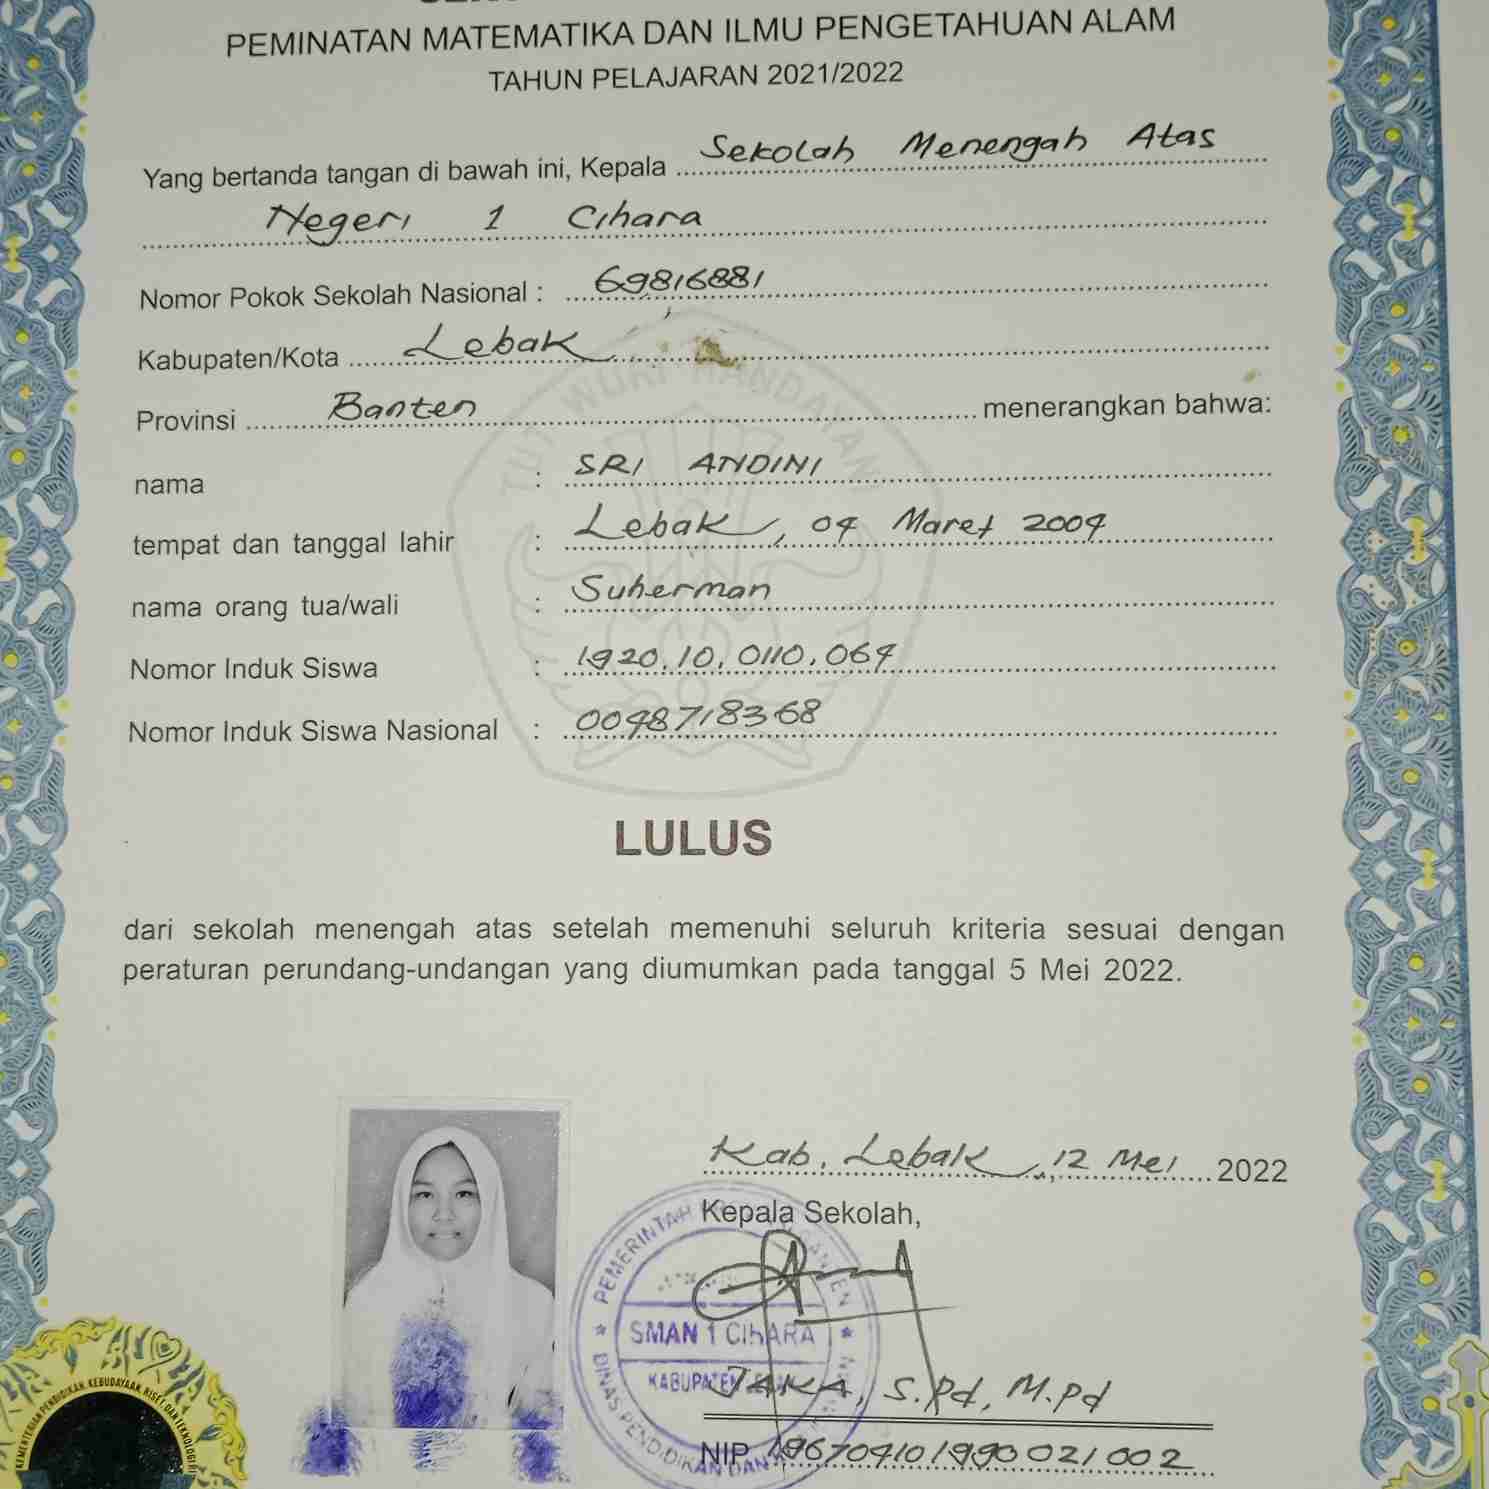 PEMINATAN MATEMATIKA DAN ILMU PENGETAHUAN ALAM
TAHUN PELAJARAN 2021/2022
Yang bertanda tangan di bawah ini, Kepala Sekolah Menengah Atas
Negeri 1 Cihara
Nomor Pokok Sekolah Nasional : 69816881
Kabupaten/Kota Lebak
Provinsi Banten menerangkan bahwa:
nama : SRI ANDINI
tempat dan tanggal lahir : Lebak, 04 Maret 2004
nama orang tua/wali : Suherman
Nomor Induk Siswa : 1920.10.0110.064
Nomor Induk Siswa Nasional : 0048718368
TUT WURI HANDAYANI
LULUS
dari sekolah menengah atas setelah memenuhi seluruh kriteria sesuai dengan
peraturan perundang-undangan yang diumumkan pada tanggal 5 Mei 2022.
Kab. Lebak, 12 Mei 2022
Kepala Sekolah,
PEMERINTAH
SMAN 1 CIHARA
KABUPATEN
DINAS PENDIDIKAN DAN
JAKA, S.Pd, M.Pd
NIP 196704101990021002
KEMENTERIAN PENDIDIKAN, KEBUDAYAAN, RISET, DAN TEKNOLOGI